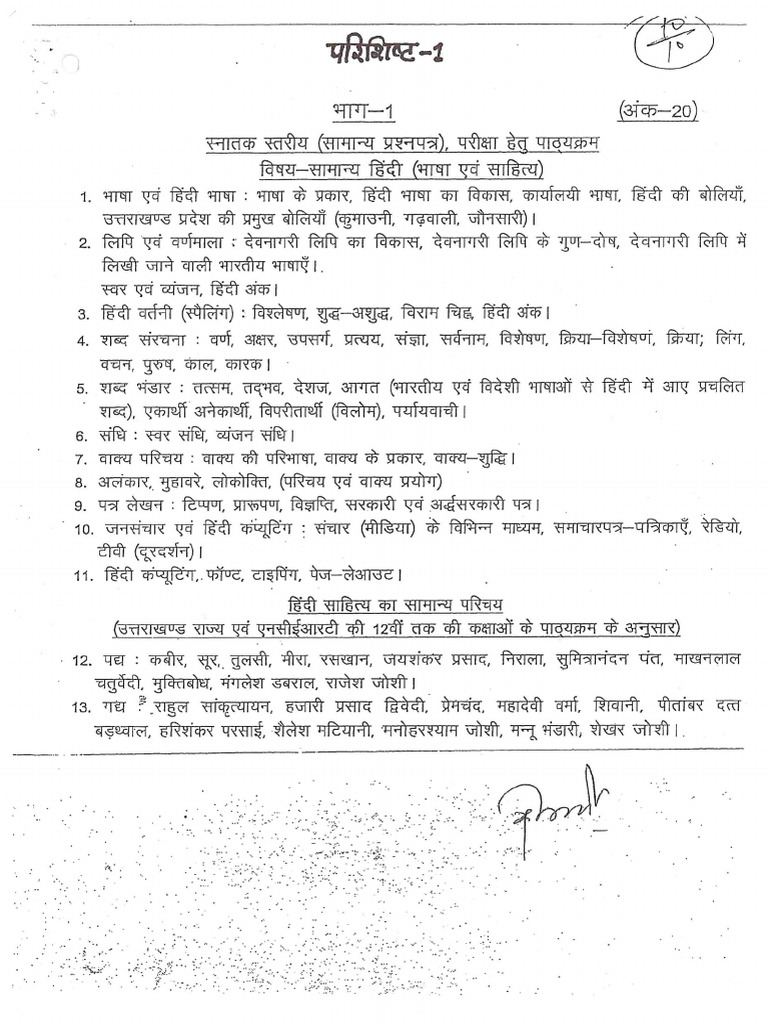 10/10
परिशिष्ट-1
भाग–1 (अंक–20)
स्नातक स्तरीय (सामान्य प्रश्नपत्र), परीक्षा हेतु पाठ्यक्रम
विषय–सामान्य हिंदी (भाषा एवं साहित्य)
1. भाषा एवं हिंदी भाषा : भाषा के प्रकार, हिंदी भाषा का विकास, कार्यालयी भाषा, हिंदी की बोलियाँ,
उत्तराखण्ड प्रदेश की प्रमुख बोलियाँ (कुमाउनी, गढ़वाली, जौनसारी)।
2. लिपि एवं वर्णमाला : देवनागरी लिपि का विकास, देवनागरी लिपि के गुण–दोष, देवनागरी लिपि में
लिखी जाने वाली भारतीय भाषाएँ।
स्वर एवं व्यंजन, हिंदी अंक।
3. हिंदी वर्तनी (स्पैलिंग) : विश्लेषण, शुद्ध–अशुद्ध, विराम चिह्न, हिंदी अंक।
4. शब्द संरचना : वर्ण, अक्षर, उपसर्ग, प्रत्यय, संज्ञा, सर्वनाम, विशेषण, क्रिया–विशेषण, क्रिया; लिंग,
वचन, पुरुष, काल, कारक।
5. शब्द भंडार : तत्सम, तद्भव, देशज, आगत (भारतीय एवं विदेशी भाषाओं से हिंदी में आए प्रचलित
शब्द), एकार्थी अनेकार्थी, विपरीतार्थी (विलोम), पर्यायवाची।
6. संधि : स्वर संधि, व्यंजन संधि।
7. वाक्य परिचय : वाक्य की परिभाषा, वाक्य के प्रकार, वाक्य–शुद्धि।
8. अलंकार, मुहावरे, लोकोक्ति, (परिचय एवं वाक्य प्रयोग)
9. पत्र लेखन : टिप्पण, प्रारूपण, विज्ञप्ति, सरकारी एवं अर्द्धसरकारी पत्र।
10. जनसंचार एवं हिंदी कंप्यूटिंग : संचार (मीडिया) के विभिन्न माध्यम, समाचारपत्र–पत्रिकाएँ, रेडियो,
टीवी (दूरदर्शन)।
11. हिंदी कंप्यूटिंग, फॉण्ट, टाइपिंग, पेज–लेआउट।
हिंदी साहित्य का सामान्य परिचय
(उत्तराखण्ड राज्य एवं एनसीईआरटी की 12वीं तक की कक्षाओं के पाठ्यक्रम के अनुसार)
12. पद्य : कबीर, सूर, तुलसी, मीरा, रसखान, जयशंकर प्रसाद, निराला, सुमित्रानंदन पंत, माखनलाल
चतुर्वेदी, मुक्तिबोध, मंगलेश डबराल, राजेश जोशी।
13. गद्य : राहुल सांकृत्यायन, हजारी प्रसाद द्विवेदी, प्रेमचंद, महादेवी वर्मा, शिवानी, पीतांबर दत्त
बड़थ्वाल, हरिशंकर परसाई, शैलेश मटियानी, मनोहरश्याम जोशी, मन्नू भंडारी, शेखर जोशी।